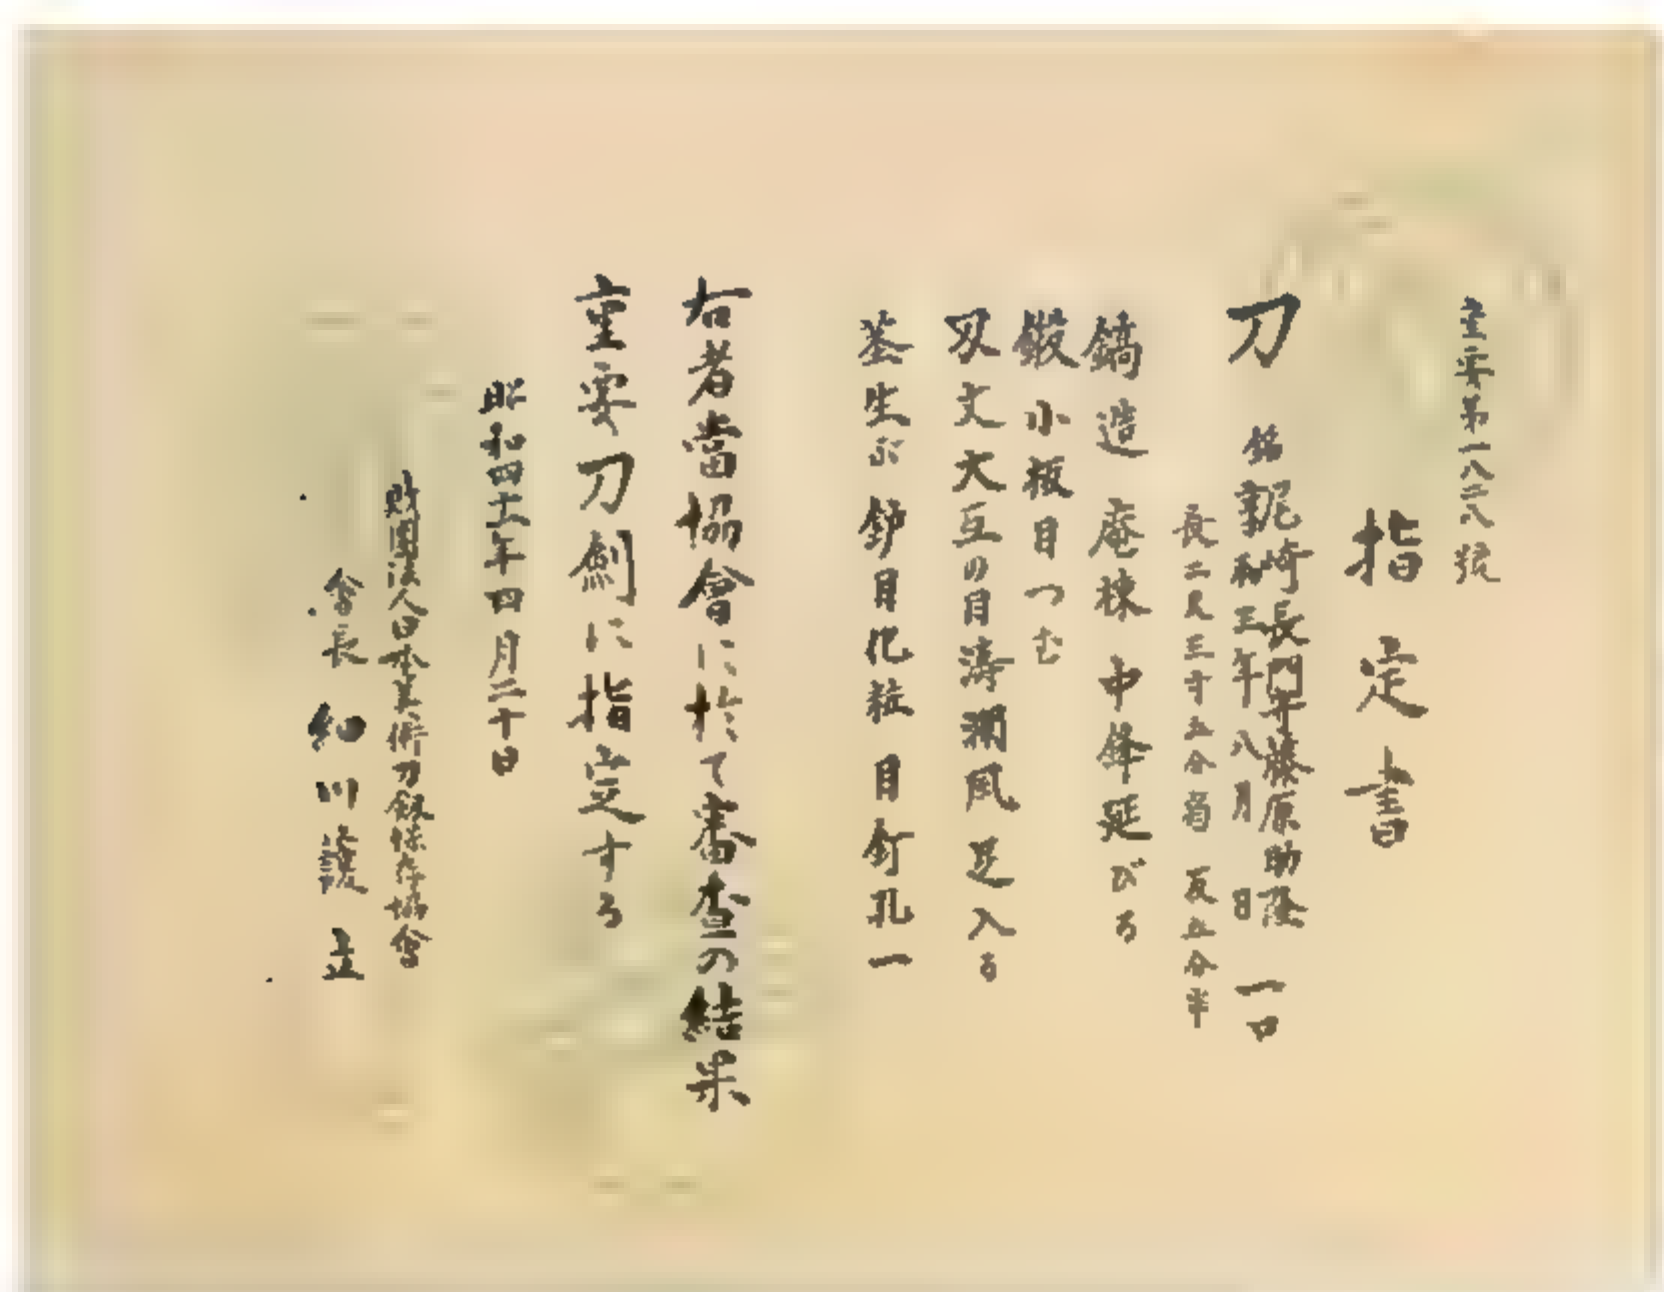 重要第一八二八號
指定書
刀 銘 尼崎長門守藤原助隆 一口
享和三年八月日
長二尺三寸五分 反五分半
鎬造 庵棟 中鋒延びる
鍛 小板目つむ
刃文 大互の目濤瀾風 足入る
茎 生ぶ 鈩目化粧 目釘孔一
右者當協會に於て審査の結果
重要刀劍に指定する
昭和四十二年四月二十日
財團法人日本美術刀劔保存協會
會長 細川護立